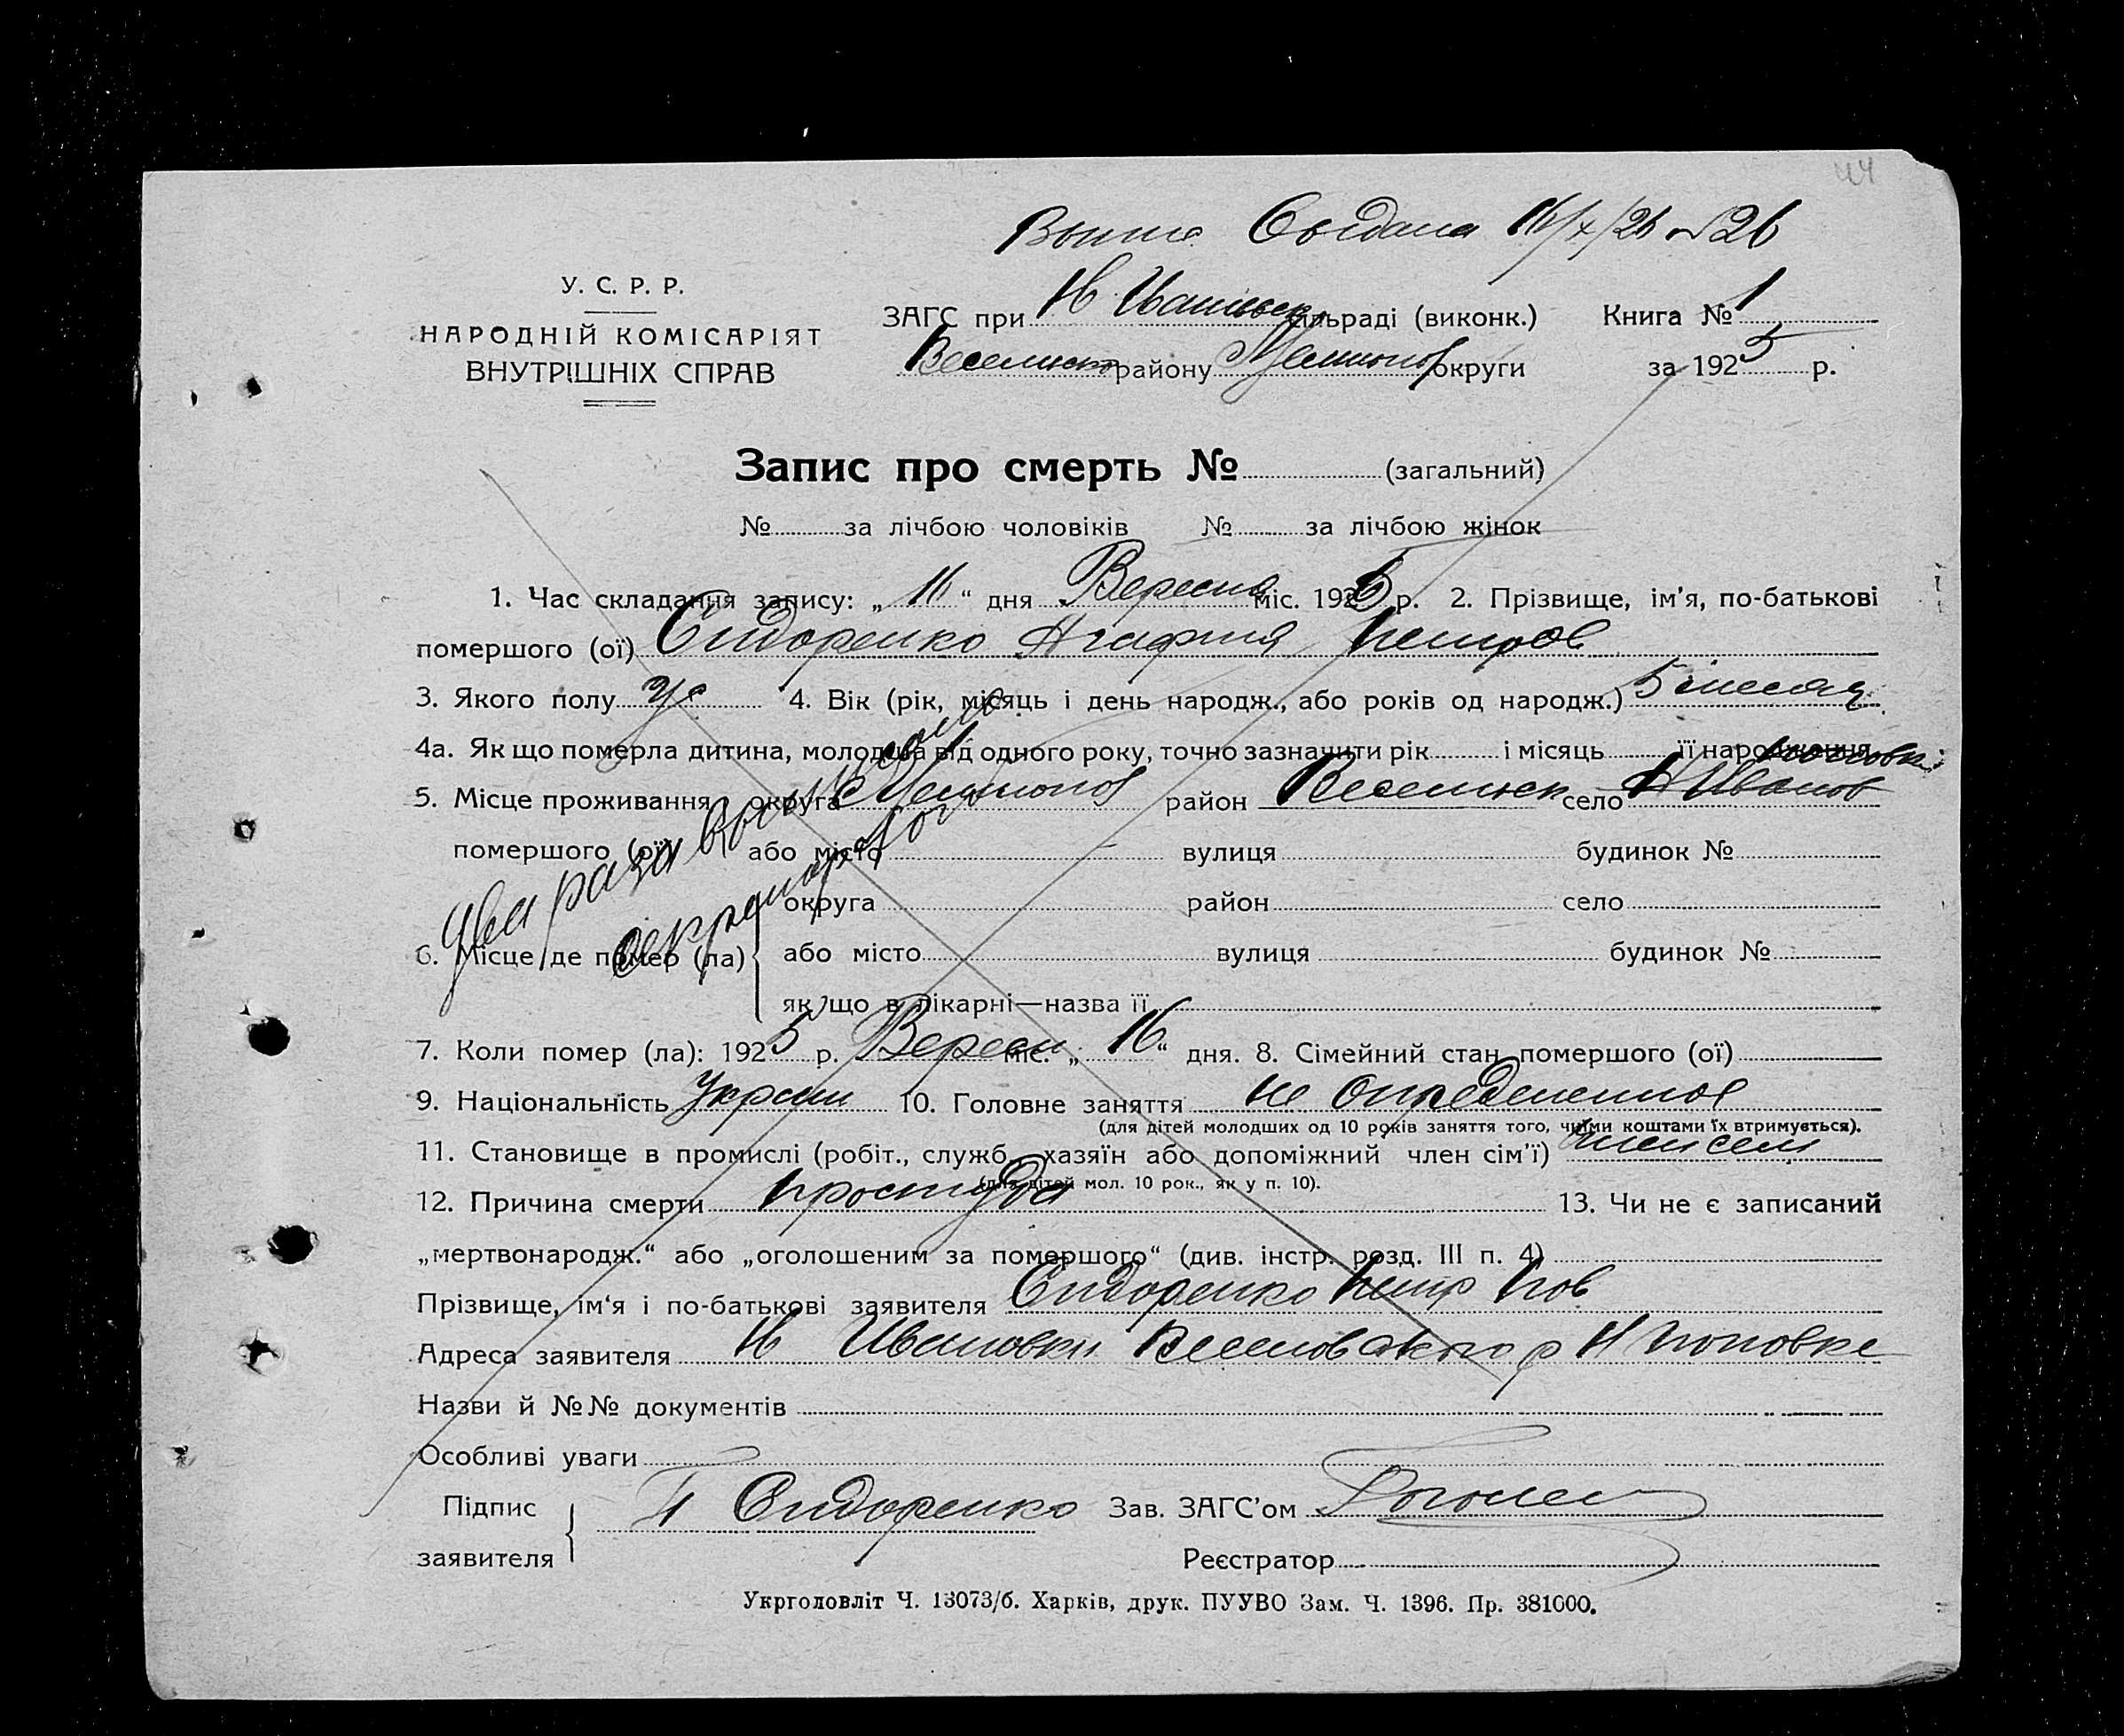 44
Выпис Выдана 16/X/26 №26
У. С. Р. Р.
НАРОДНІЙ КОМІСАРІЯТ
ВНУТРІШНІХ СПРАВ
ЗАГС при Н сільраді (виконк.) Книга № 1
району округи за 1925 р.
Запис про смерть № (загальний)
№ за лічбою чоловіків № за лічбою жінок
1. Час складання запису: „16“ дня Вересня міс. 1925 р. 2. Прізвище, ім’я, по-батькові
помершого (ої) Сидоренко Агафия Петров
3. Якого полу ж 4. Вік (рік, місяць і день народж., або років од народж.) 5 месяц
4а. Як що померла дитина, молодша від одного року, точно зазначити рік і місяць її народження
5. Місце проживання округа Мелитопол район село Н Иванов
помершого (ої) або місто вулиця будинок №
два раза
округа район село
6. Місце де помер (ла) або місто вулиця будинок №
як що в лікарні—назва її
7. Коли помер (ла): 1925 р. Вересн міс. „16“ дня. 8. Сімейний стан помершого (ої)
9. Національність Украин 10. Головне заняття не определенное
(для дітей молодших од 10 років заняття того, чиїми коштами їх втримується).
11. Становище в промислі (робіт., служб., хазяїн або допоміжний член сім’ї) член сем
(для дітей мол. 10 рок., як у п. 10).
12. Причина смерти простуда 13. Чи не є записаний
„мертвонародж.“ або „оголошеним за помершого“ (див. інстр. розд. III п. 4)
Прізвище, ім‘я і по-батькові заявителя Сидоренко Петр
Адреса заявителя Н Ивановки Веселовского р Н Поповке
Назви й №№ документів
Особливі уваги
Підпис
заявителя
П Сидоренко Зав. ЗАГС’ом
Реєстратор
Укрголовліт Ч. 13073/б. Харків, друк. ПУУВО Зам. Ч. 1396. Пр. 381000.